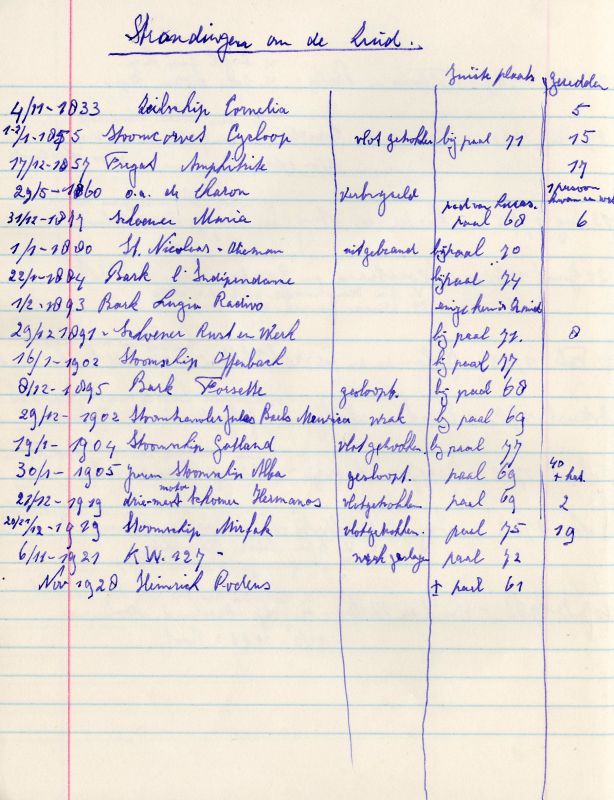 Strandingen om de Zuid.
Juiste plaats geredden
4/11-1833 Zeilschip Cornelia 5
1-2/1-1855 Stoomcorvet Cycloop vlot getrokken bij paal 71 15
17/12-1857 Fregat Amphitrite 17
29/5-1860 o.a. de Charon verbrijzeld 1 persoon
31/12-1877 Schoener Maria paal 68 6
1/1-1880 St. Nicolaas uitgebrand bij paal 70
22/1-1884 Bark l'Indipendame bij paal 74
1/2-1893 Bark Lugin Radivo
29/12 1891- Schoener Rust en Werk bij paal 71. 8
16/1-1902 Stoomschip Offenbach bij paal 77
8/12-1895 Bark Forsette gesloopt. bij paal 68
29/12-1902 Stoomtrawler Jules Baels Mauricx wrak bij paal 69
19/1-1904 Stoomschip Gotland vlot getrokken. bij paal 77
30/1-1905 Stoomschip Alba gesloopt. paal 69 40 + kat.
motor
21/12-1919 drie-mast schoener Hermanos vlotgetrokken paal 69 2
20/21/12-1919 Stoomschip Mirfak vlotgetrokken. paal 75 19
6/11-1921 K.W. 127 - wrak geslagen paal 72
Nov 1928 Heinrich Podeus ± paal 61